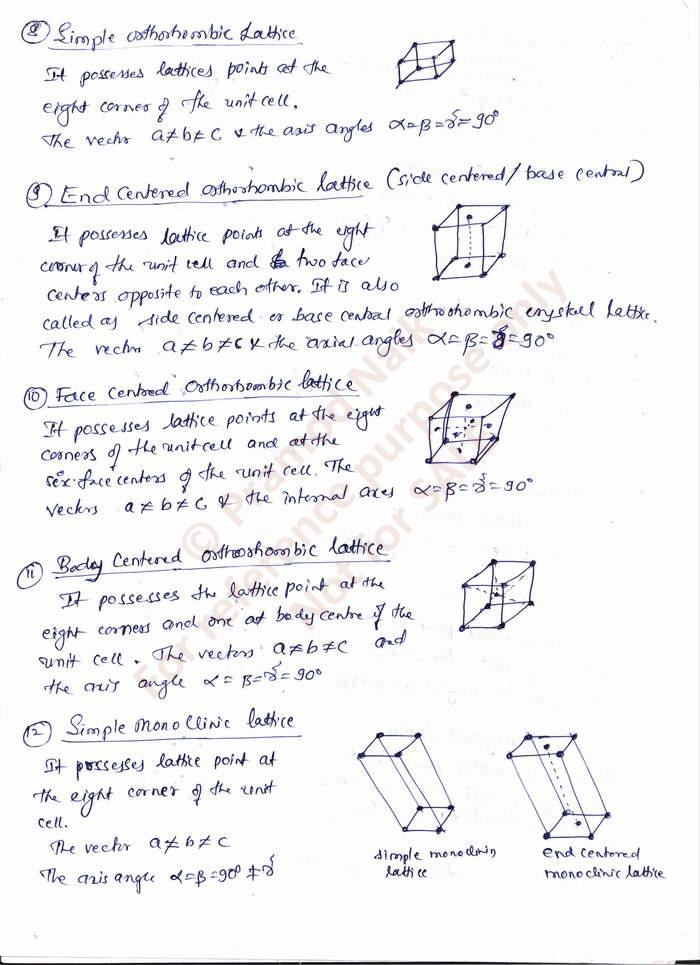 8) Simple orthorhombic Lattice
It possesses lattices points at the
eight corner of the unit cell.
The vector a≠b≠c & the axis angles α=β=γ=90°
9) End Centered orthorhombic lattice (side centered/base central)
It possesses lattice points at the eight
corner of the unit cell and two face
centers opposite to each other. It is also
called as side centered or base central orthorhombic crystal lattice.
The vector a≠b≠c & the axial angles α=β=γ=90°
10) Face Centred Orthorhombic lattice
It possesses lattice points at the eight
corners of the unit cell and at the
six face centers of the unit cell. The
vectors a≠b≠c, & the internal axes α=β=γ=90°
11) Body Centered orthorhombic lattice
It possesses the lattice point at the
eight corners and one at body centre of the
unit cell. The vectors a≠b≠c and
the axis angle α=β=γ=90°
12) Simple Monoclinic lattice
It possesses lattice point at
the eight corner of the unit
cell.
The vector a≠b≠c
The axis angle α=β=90°≠γ
simple monoclinic
lattice
end centered
monoclinic lattice
© Pramod Naik
For reference purpose only
Not for